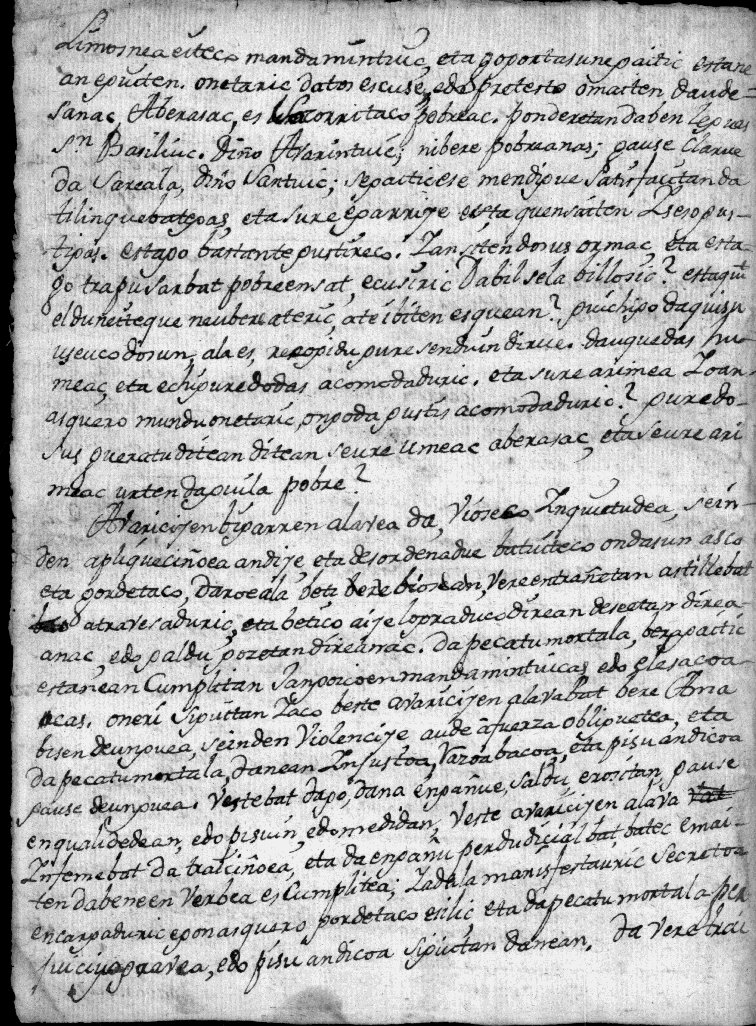 Limosnea eiteco mandamintuic, eta goportasune paitic estane
an epuiten. onetaric datos escuse, edo pretesto omaiten daude=
sanac, Aberasac, es Socorritaco pobreac. ponderetan daben lepues
Sn Basiliuc. diño Avarintuic; nibere pobreanas; gause Clarue
da Sareala, diño Santuic; sepaiticese mendipue Satisfaciitan da
tilinque batepas, eta sure eparrije esta quensaiten
tipas. estapo bastante pustireco. Zansiten dosus ormac, eta esta
po trapu sarbat pobreensat, ecusiric Dabilsela billosic? estaquit
eldunetteque neuberea teric, ate ibiten esquean? puichipo daquizu
useuco dosun, ala es, recopidu pure senduin dirue. dauquedas hu
meac, eta echi puredodas acomodaduric. eta sure arimea Zoan
asquero mundu onetaric, onpoda pustis acomodaduric? puredo-
sus queratu ditean ditean seure umeac aberasac, eta seure ari
meac urten dapuila pobre?
Avaricijen biparren alavea da, Vioseco Inquietudea, sein-
den apliqueciñoea andije, eta desordenadue batuiteco ondasun asco
eta gordetaco, daroeala beti bere biosean, vere entrañetan astillebat
atravesaduric, eta betico aije lopraduco direan deseetan direa
anac, edo galdu gozetan direanac. da pecatu mortala, berapaitic
estanean Cumplitan Janpoicoen mandamintuicas edo elesacoa
cas. oneri Sipuitan Zaco beste avaricijen alavabat bere Ama
bisen deunpuea, seinden Violencije aude afuerza oblipuetea, eta
da pecatu mortala, danean Injustoa, Vazoabacoa, eta pisu andicoa
pause deunpuea. Vestebat dapo, dana enpañue, saldu erositan, pause
enqualidedean, edo pisuin, edo medidan, Veste avaricijen alava
Infamebat da traiciñoea, eta da enpañu perdudicial bat, batec emai-
ten dabeneen Verbea es Cumplitea; Zadela manisfestauric Secretoa
encarpaduric eponasquero gordetaco esilic eta da pecatu mortala per
juiciyo pravea, edo pisu andicoa sipuitan danean. da vere trai